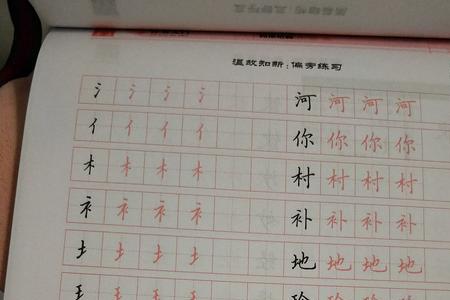 温故知新：偏旁练习
氵 氵 氵 氵 河 河 河 河
亻 亻 亻 亻 你 你 你 你
木 木 木 木 村 村 村 村
衤 衤 衤 衤 补 补 补 补
土 土 土 土 地 地 地 地